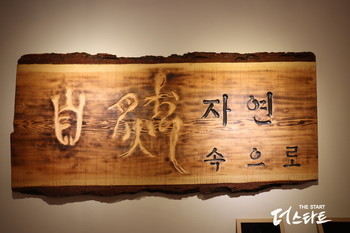 自然 자연
속으로
THE START
더스타트